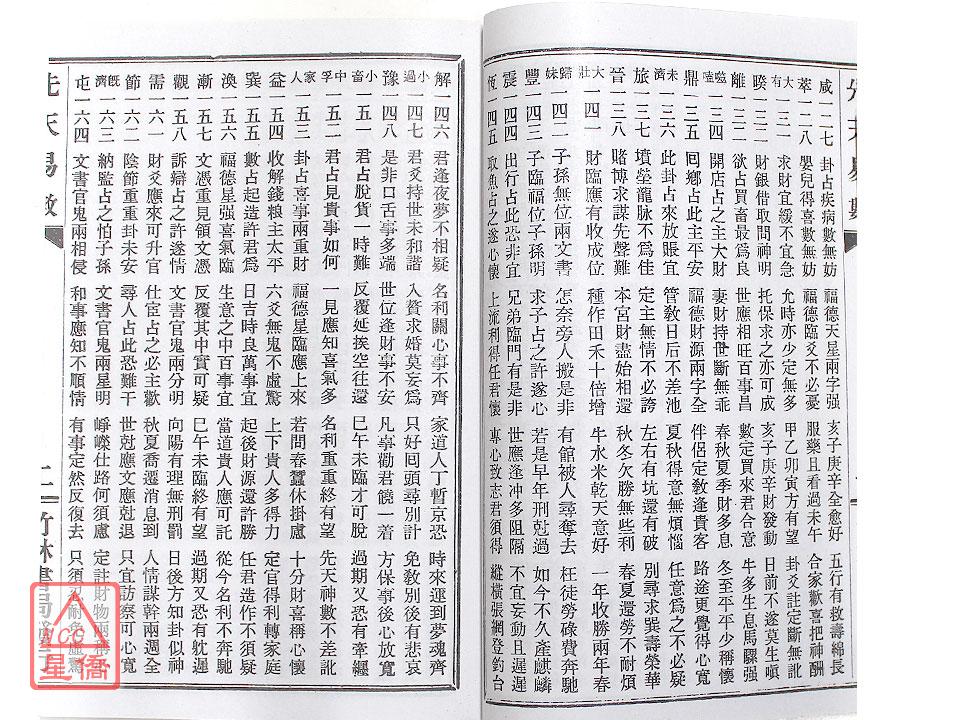 咸 一二七 卦占疾病喜數無妨 福德天星兩字强 亥子庚辛全愈好 五行有救壽綿長
萃 一二八 嬰兒得喜數無妨 福德臨爻不必憂 服藥且看過未午 合家歡喜把神酬
大有 一三一 求財宜緩不宜急 允時亦少定無多 甲乙卯寅方有望 卦爻註定斷無訛
睽 一三二 財銀借取問神明 托保求之亦可成 亥子庚辛財發動 日前不遂莫生嗔
離 一三三 欲占買畜最爲良 世應相旺百事昌 數定買來君合意 牛多生息馬騾强
噬嗑 一三四 開店占之主大財 妻財持世斷無乖 春秋夏季財多息 冬至平平少稱懷
鼎 一三五 囘鄕占此主平安 福德財源兩字全 伴侶定敎逢貴客 路途更覺得心寬
未濟 一三六 此卦占來放賬宜 管敎日后不差池 夏秋得意無煩惱 任意爲之不必疑
旅 一三七 墳塋龍脉不爲佳 定主無情不必誇 左右有坑還有破 別尋求巽壽榮華
晉 一三八 賭博求謀先聲難 本宮財盡始相還 秋冬欠勝無些利 春夏還勞不耐煩
大壯 一四一 財臨應有收成位 種作田禾十倍增 牛水米乾天意好 一年收勝兩年春
歸妹 一四二 子孫無位兩文書 怎奈旁人搬是非 有館被人尋奪去 枉徒勞碌費奔馳
豐 一四三 子臨福位子孫明 求子占之許遂心 若是早年刑尅過 如今不久產麒麟
震 一四四 出行占此恐非宜 兄弟臨門有是非 世應逢冲多阻隔 不宜妄動且遲遲
恆 一四五 取魚占之遂心懷 上流利得任君懷 專心致志君須得 縱橫張網登釣台
解 一四六 君逢夜夢不相疑 名利關心事不齊 家道人丁暫京恐 時來運到夢魂齊
小過 一四七 君爻持世未和諧 入贅求婚莫妄爲 只好囘頭尋別計 免敎別後有悲哀
豫 一四八 是非口舌事多端 世位逢財事不安 凡事勸君饒一着 方保事後心放寬
小畜 一五一 君占脫貨一時難 反覆延挨空往還 巳午未臨才可脫 過期又恐有牽纒
中孚 一五二 君占見貴事如何 一見應知喜氣多 名利重重終有望 先天神數不差訛
家人 一五三 卦占喜事兩重財 福德星臨應上來 若問春蠶休掛慮 十分財喜稱心懷
益 一五四 收解錢粮主太平 六爻無鬼不虛驚 上下貴人多得力 定官得利轉家庭
巽 一五五 數占起造許君爲 日吉時良萬事宜 起後財源還許勝 任君造作不須疑
渙 一五六 福德星强喜氣臨 生意之中百事宜 當道貴人應可託 從今名利不奔馳
漸 一五七 文憑重見領文憑 反覆其中實可疑 巳午未臨終有望 過期又恐有躭遲
觀 一五八 訴辯占之許遂情 文書官鬼兩分明 向陽有理無刑罰 日後方知卦似神
需 一六一 財爻應來可升官 仕臣占之必主歡 秋夏喬遷消息到 人情謀幹兩週全
節 一六二 陰節重重卦未安 尋人占此恐難干 世尅應文應尅退 只宜訪察可心寬
旣濟 一六三 納監占之怕子孫 文書官鬼兩星明 崢嶸仕路何須慮 定註財物兩稱
屯 一六四 文書官鬼兩相侵 和事應知不順情 有事定然反復去 只須忍耐免虛驚
先天易數
二
竹林書局發行
星僑